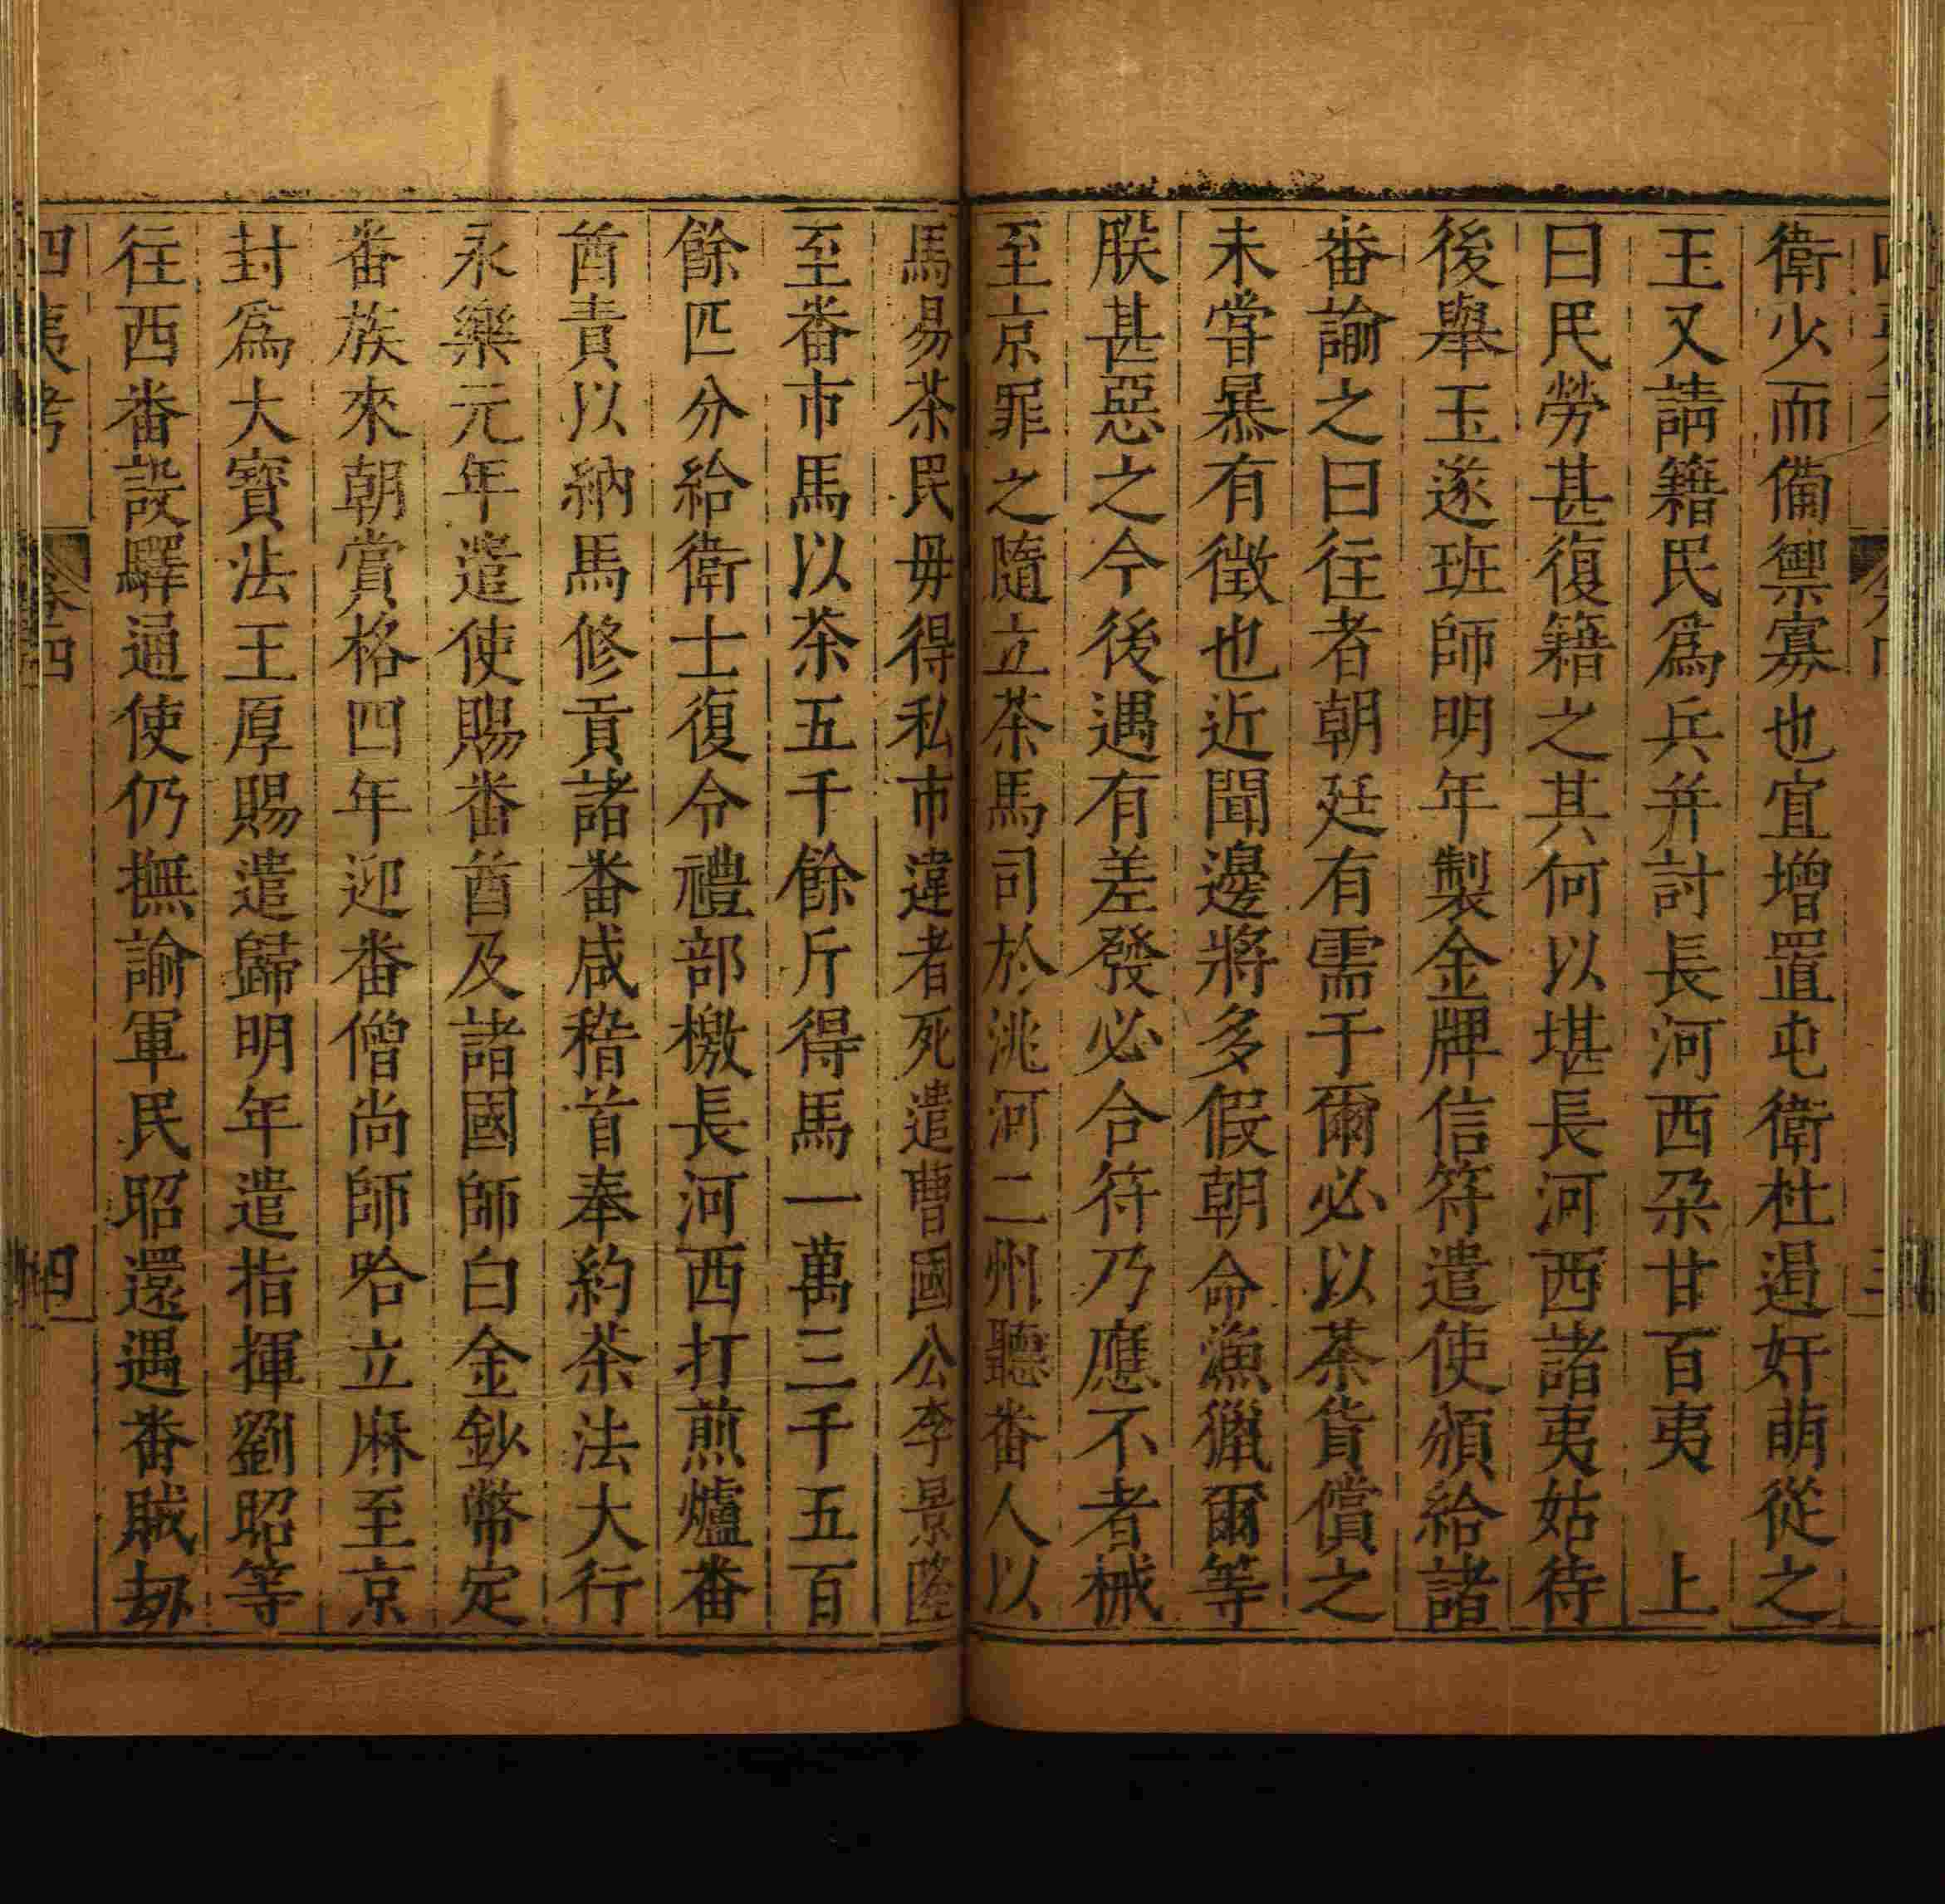 衛少而備禦寡也宜增置屯衛杜遏奸萌從之
玉又請籍民爲兵并討長河西朶甘百夷 上
曰民勞甚復籍之其何以堪長河西諸夷姑待
後舉玉遂班師明年製金牌信符遣使頒給諸
番諭之曰往者朝廷有需于爾必以茶貨償之
未嘗暴有徵也近聞邊將多假朝命漁獵爾等
朕甚惡之今後遇有差發必合符乃應不者械
至京罪之隨立茶馬司於洮河二州聽番人以
馬易茶民毋得私市違者死遣曹國公李景隆
至番市馬以茶五千餘斤得馬一萬三千五百
餘匹分給衛士復令禮部檄長河西打煎爐番
酋責以納馬修貢諸番咸稽首奉約茶法大行
永樂元年遣使賜番酋及諸國師白金鈔幣定
番族來朝賞格四年迎番僧尚師哈立麻至京
封爲大寶法王厚賜遣歸明年遣指揮劉昭等
往西番設驛通使仍撫諭軍民昭還遇番賊劫
四夷考 卷四 四